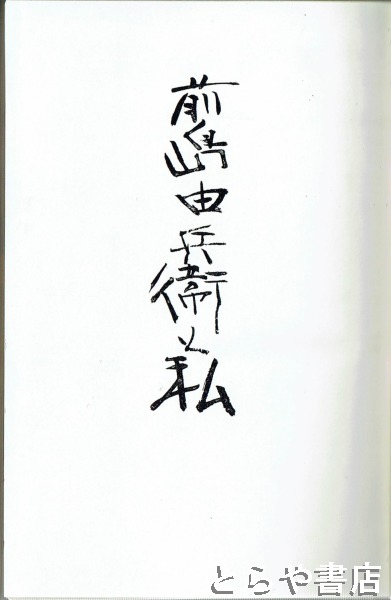 前嶋由兵衛と私
とらや書店